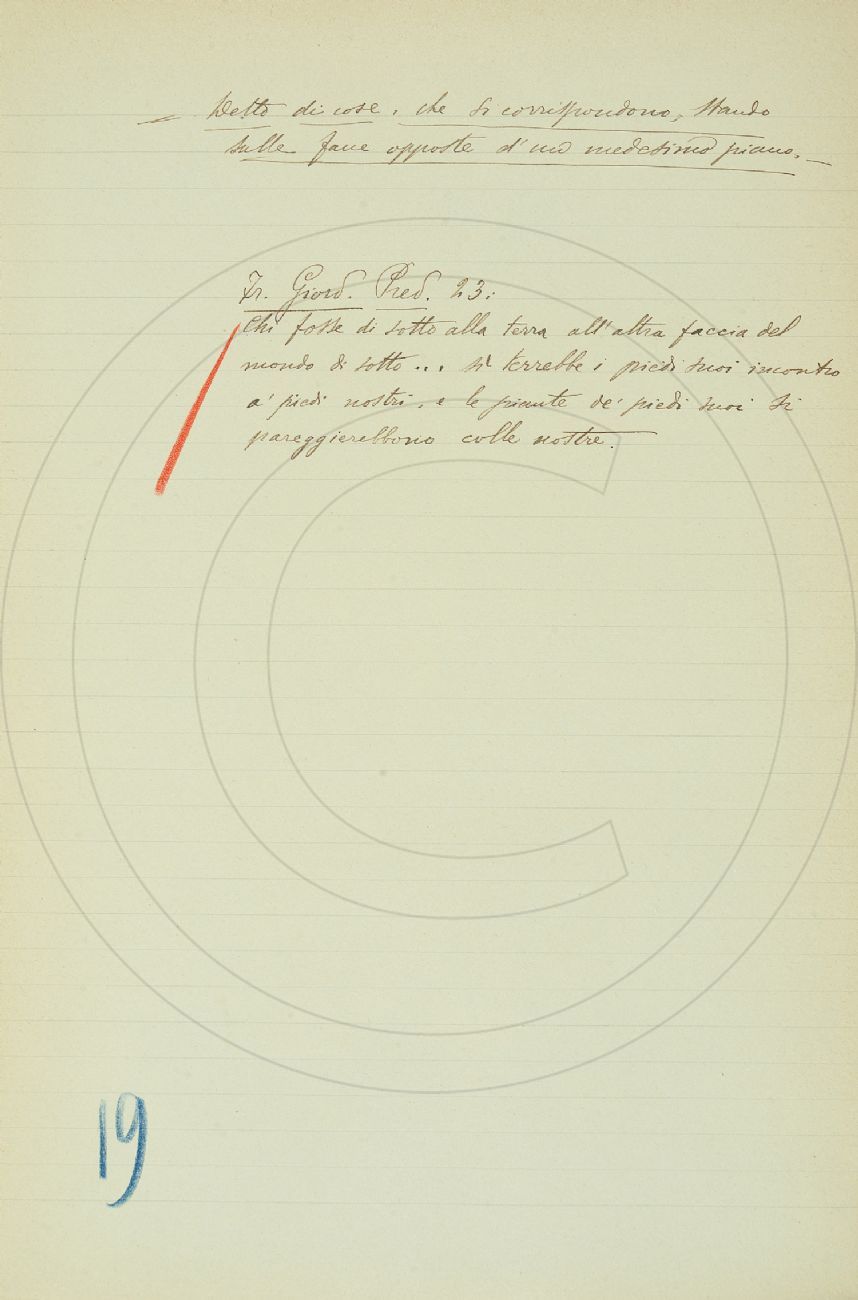 = Detto di cose, che si corrispondono, stando
sulle facce opposte d'uno medesimo piano. —
Fr. Giord. Pred. 23:
Chi fosse di sotto alla terra all'altra faccia del
mondo di sotto... sì terrebbe i piedi suoi incontro
a' piedi nostri, e le piante de' piedi suoi si
pareggierebbono colle nostre. —
19